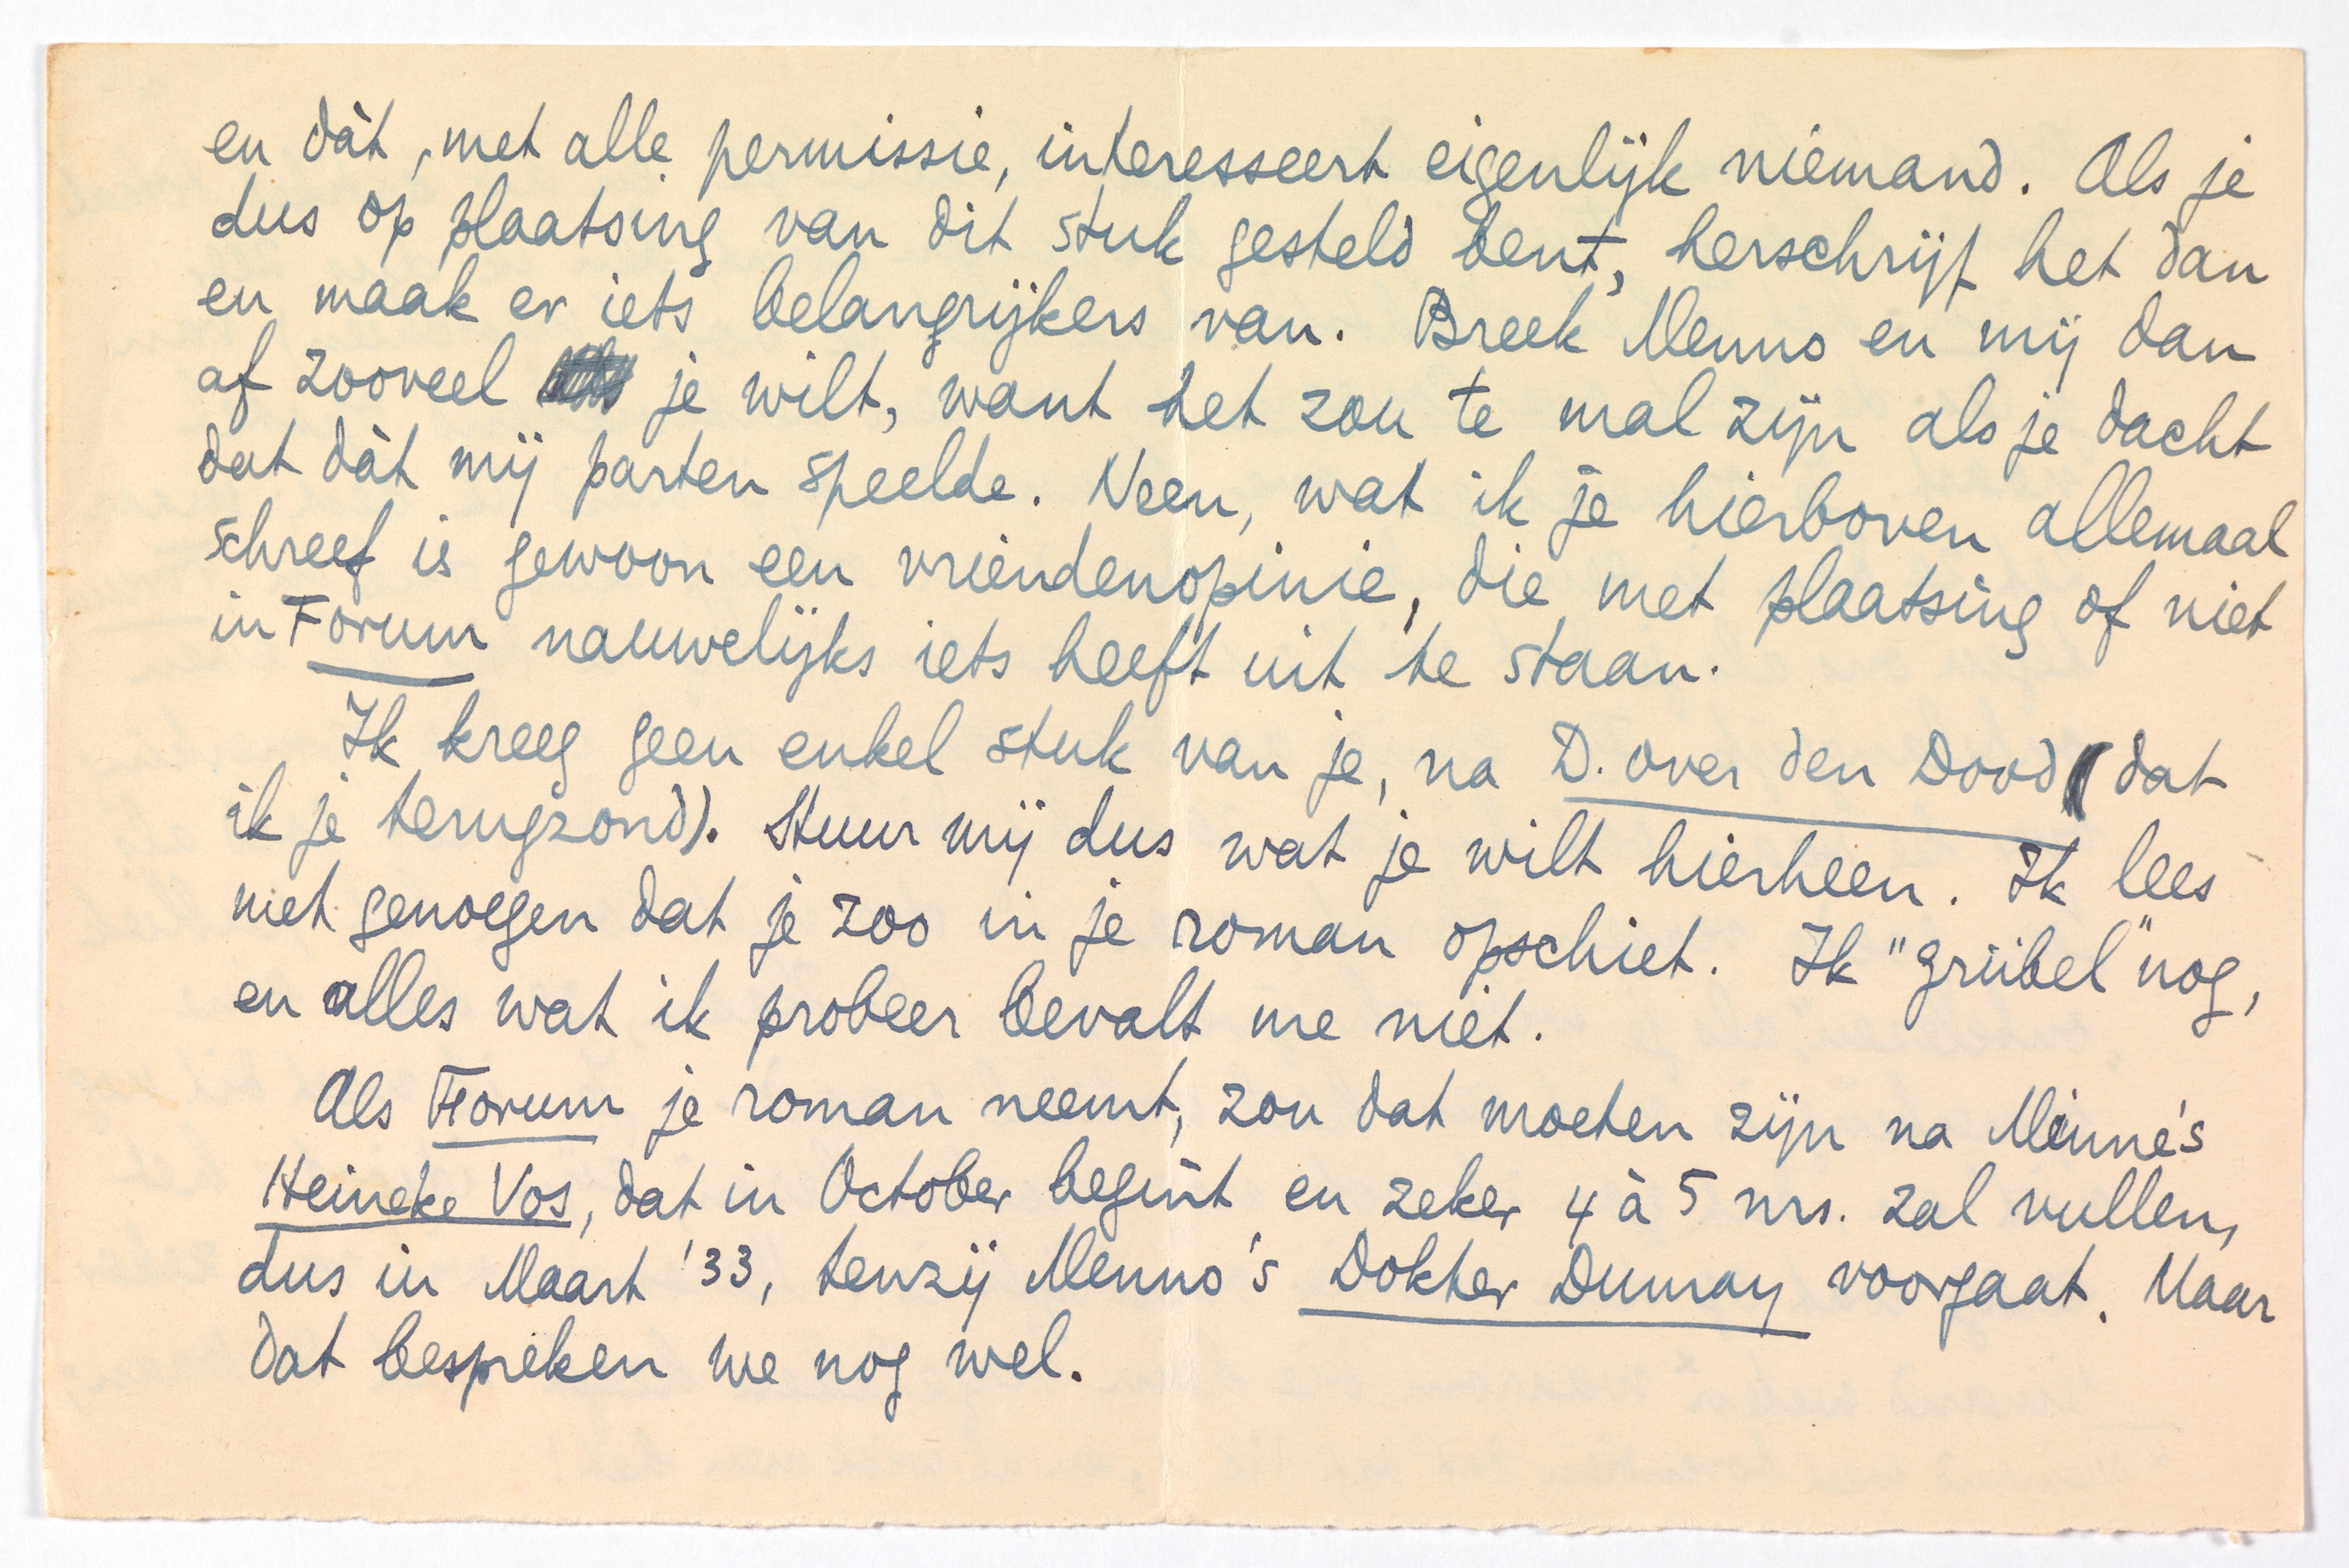 en dàt, met alle permissie, interesseert eigenlijk niemand. Als je
dus op plaatsing van dit stuk gesteld bent, herschrijf het dan
en maak er iets belangrijkers van. Breek Menno en mij dan
af zooveel je wilt, want het zou te mal zijn als je dacht
dat dàt mij parten speelde. Neen, wat ik je hierboven allemaal
schreef is gewoon een vriendenopinie, die met plaatsing of niet
in Forum nauwelijks iets heeft uit te staan.
Ik kreeg geen enkel stuk van je, na D. over den Dood (dat
ik je terugzond). Stuur mij dus wat je wilt hierheen. Ik lees
met genoegen dat je zoo in je roman opschiet. Ik "grübel" nog,
en alles wat ik probeer bevalt me niet.
Als Forum je roman neemt, zou dat moeten zijn na Minne's
Heineke Vos, dat in October begint en zeker 4 à 5 nrs. zal vullen,
dus in Maart '33, tenzij Menno's Dokter Dumay voorgaat. Maar
dat bespreken we nog wel.